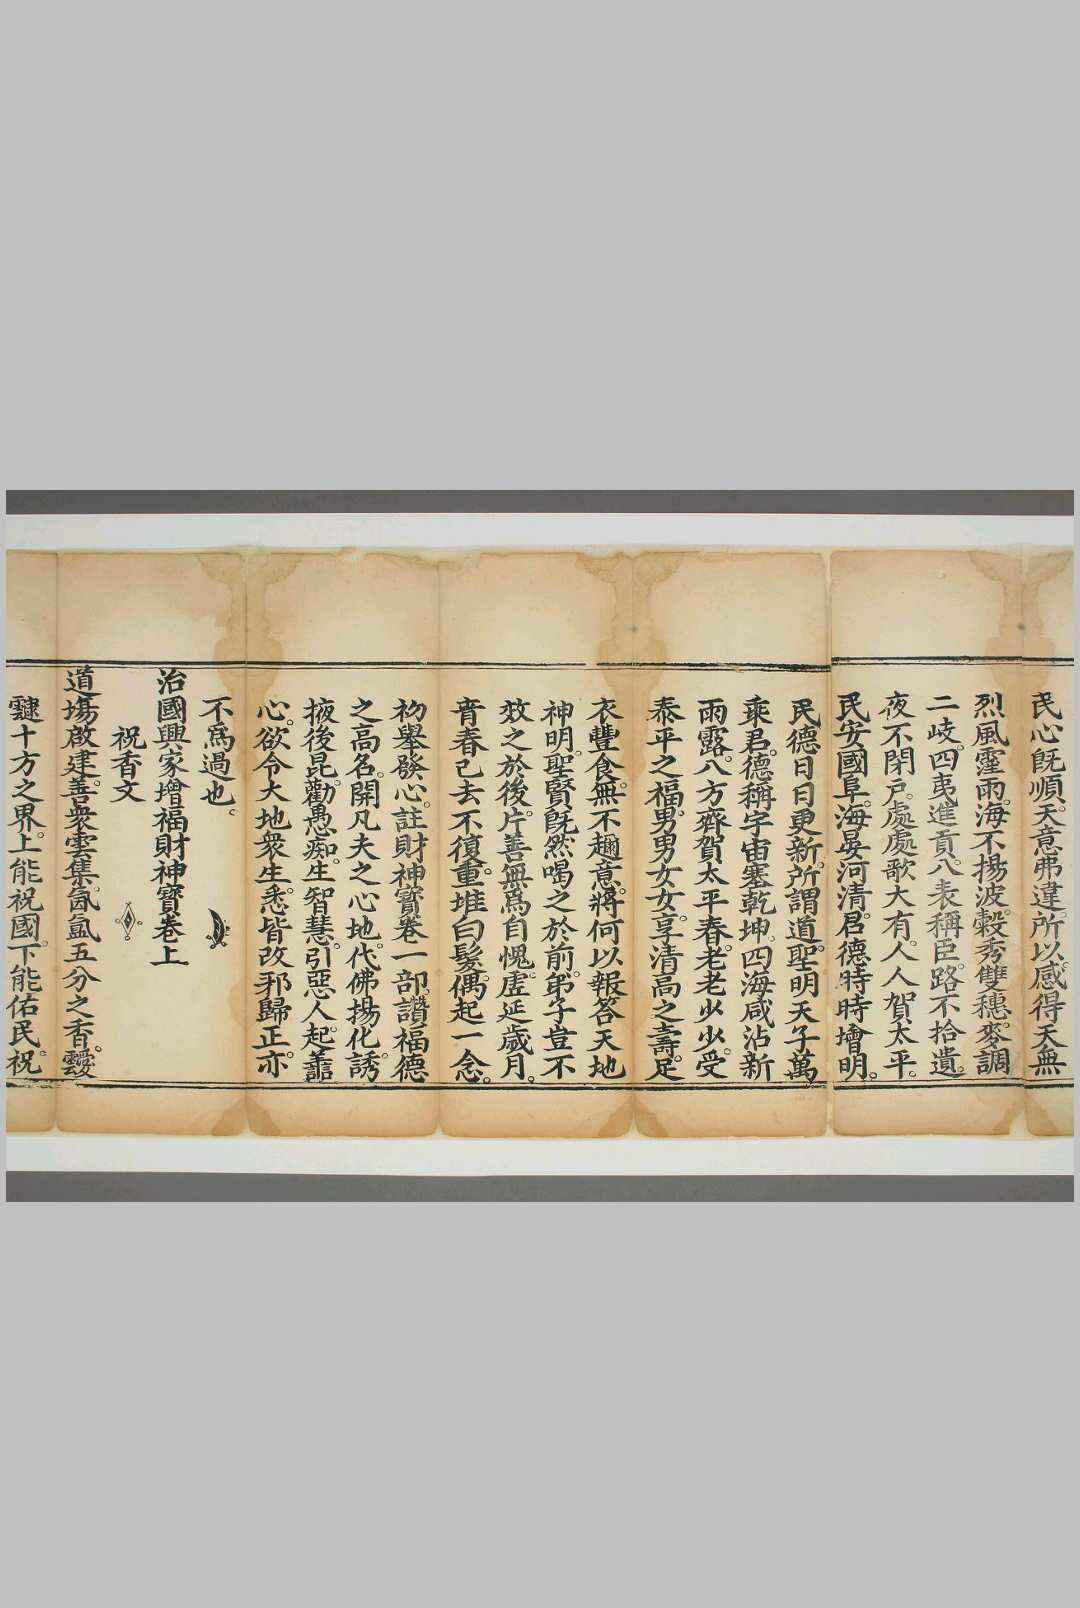 民心旣順。天意弗違。所以感得天無
烈風霪雨。海不揚波。穀秀雙穗。麥調
二岐。四夷進貢。八表稱臣。路不拾遺。
夜不閉戶。處處歌大有。人人賀太平。
民安國阜。海晏河清。君德時時增明。
民德日日更新。所謂道。聖明天子萬
乘君。德稱宇宙塞乾坤。四海咸沾新
雨露。八方齊賀太平春。老老少少。受
泰平之福。男男女女。享清高之壽。足
衣豐食。無不趣意。將何以報答天地
神明。聖賢旣然喝之於前。弟子豈不
效之於後。片善無爲自愧。虛延歲月。
青春已去不復重。堆白髮。偶起一念。
初舉發心。註財神寶卷一部。讚福德
之高名。開凡夫之心地。代佛揚化。誘
掖後昆。勸愚痴。生智慧。引惡人起善
心。欲令大地衆生。悉皆改邪歸正。亦
不爲過也。
治國興家增福財神寶卷上
祝香文
道場啟建。善衆雲集。氤氳五分之香。靉
靆十方之界。上能祝國。下能佑民。祝